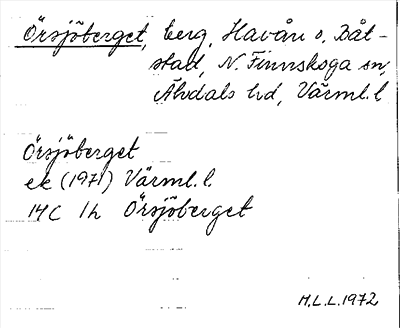 Örsjöberget, berg, Havån o, Båt-
stad, N. Finnskoga sn,
Älvdals hd, Värml. l
Örsjöberget
ek (1971) Värml. l.
14C 1h Örsjöberget
M.L.L. 1972